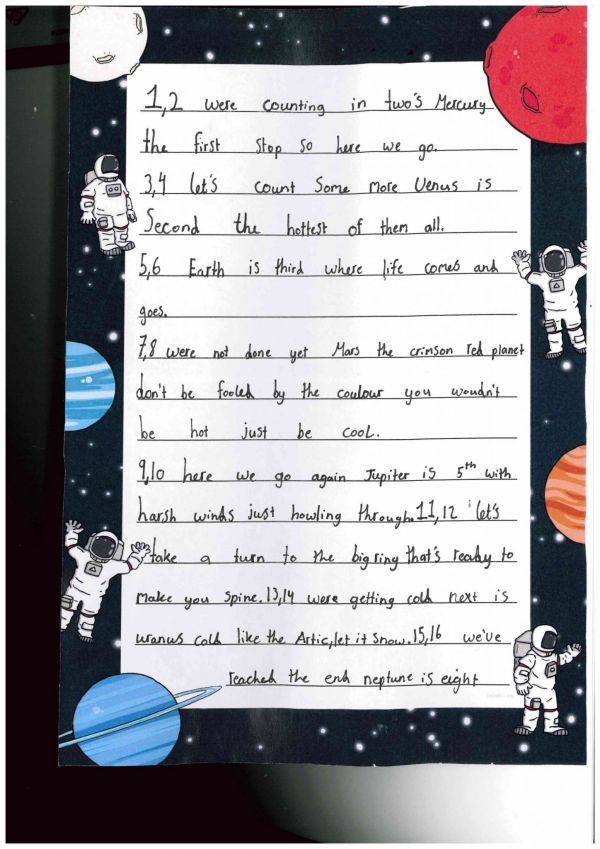 1,2 were counting in two's Mercury
the first stop so here we go.
3,4 let's count Some More Venus is
Second the hottest of them all.
5,6 Earth is third where life comes and
goes.
7,8 were not done yet Mars the crimson red planet
don't be fooled by the coulour you woudn't
be hot just be cool.
9,10 here we go again Jupiter is 5th with
harsh winds just howling through.11,12 let's
take a turn to the big ring that's ready to
make you spine.13,14 were getting cold next is
uranus cold like the Artic,let it snow.15,16 we've
reached the end neptune is eight